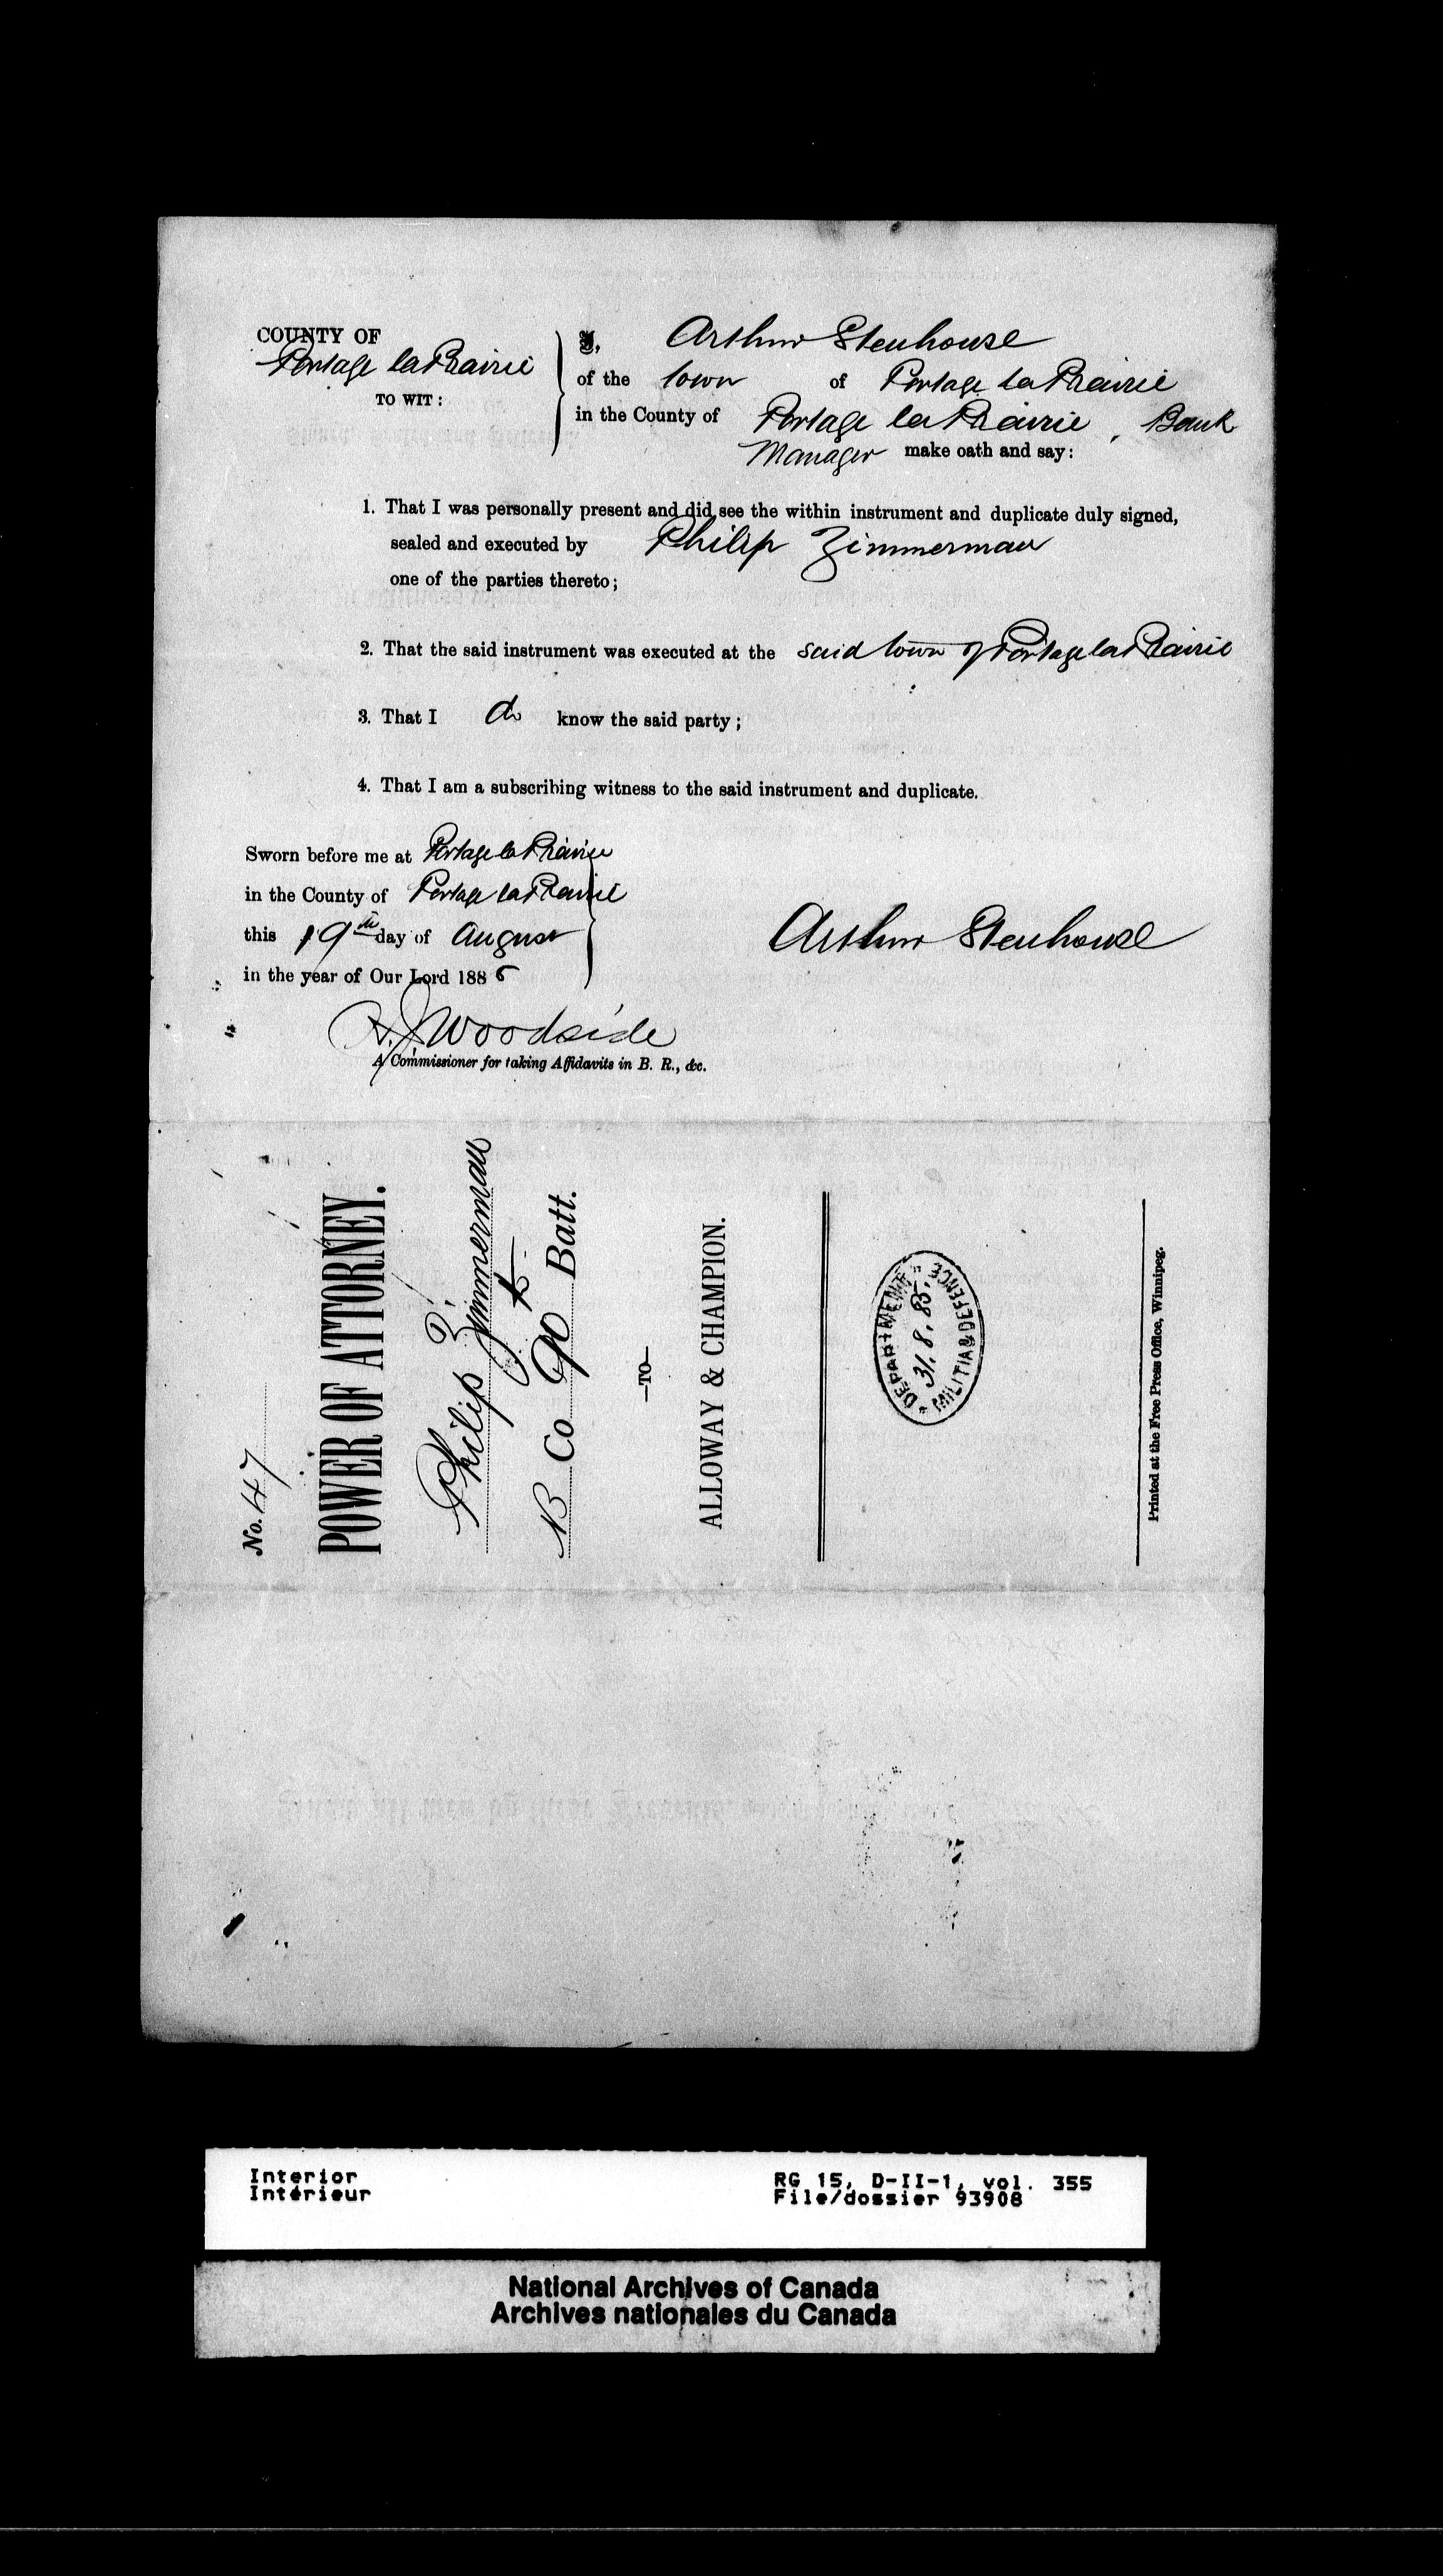 COUNTY OF
Portage la Prairie
TO WIT:
I, Arthur Stenhouse
of the town of Portage la Prairie
in the County of Portage la Prairie, Bank
Manager make oath and say:
1. That I was personally present and did see the within instrument and duplicate duly signed,
sealed and executed by Philip Zimmerman
one of the parties thereto;
2. That the said instrument was executed at the said town of Portage la Prairie
3. That I do know the said party;
4. That I am a subscribing witness to the said instrument and duplicate.
Sworn before me at Portage la Prairie
in the County of Portage la Prairie
this 19th day of August
in the year of Our Lord 1885
Arthur Stenhouse
H.J. Woodside
A Commissioner for taking Affidavits in B. R., &c.
No. 147
POWER OF ATTORNEY.
Philip Zimmerman
B Co 90 Batt.
—TO—
ALLOWAY & CHAMPION.
DEPARTMENT
31.8.85.
MILITIA & DEFENCE
Printed at the Free Press Office, Winnipeg.
Interior
Intérieur
RG 15, D-II-1, vol. 355
File/dossier 93908
National Archives of Canada
Archives nationales du Canada